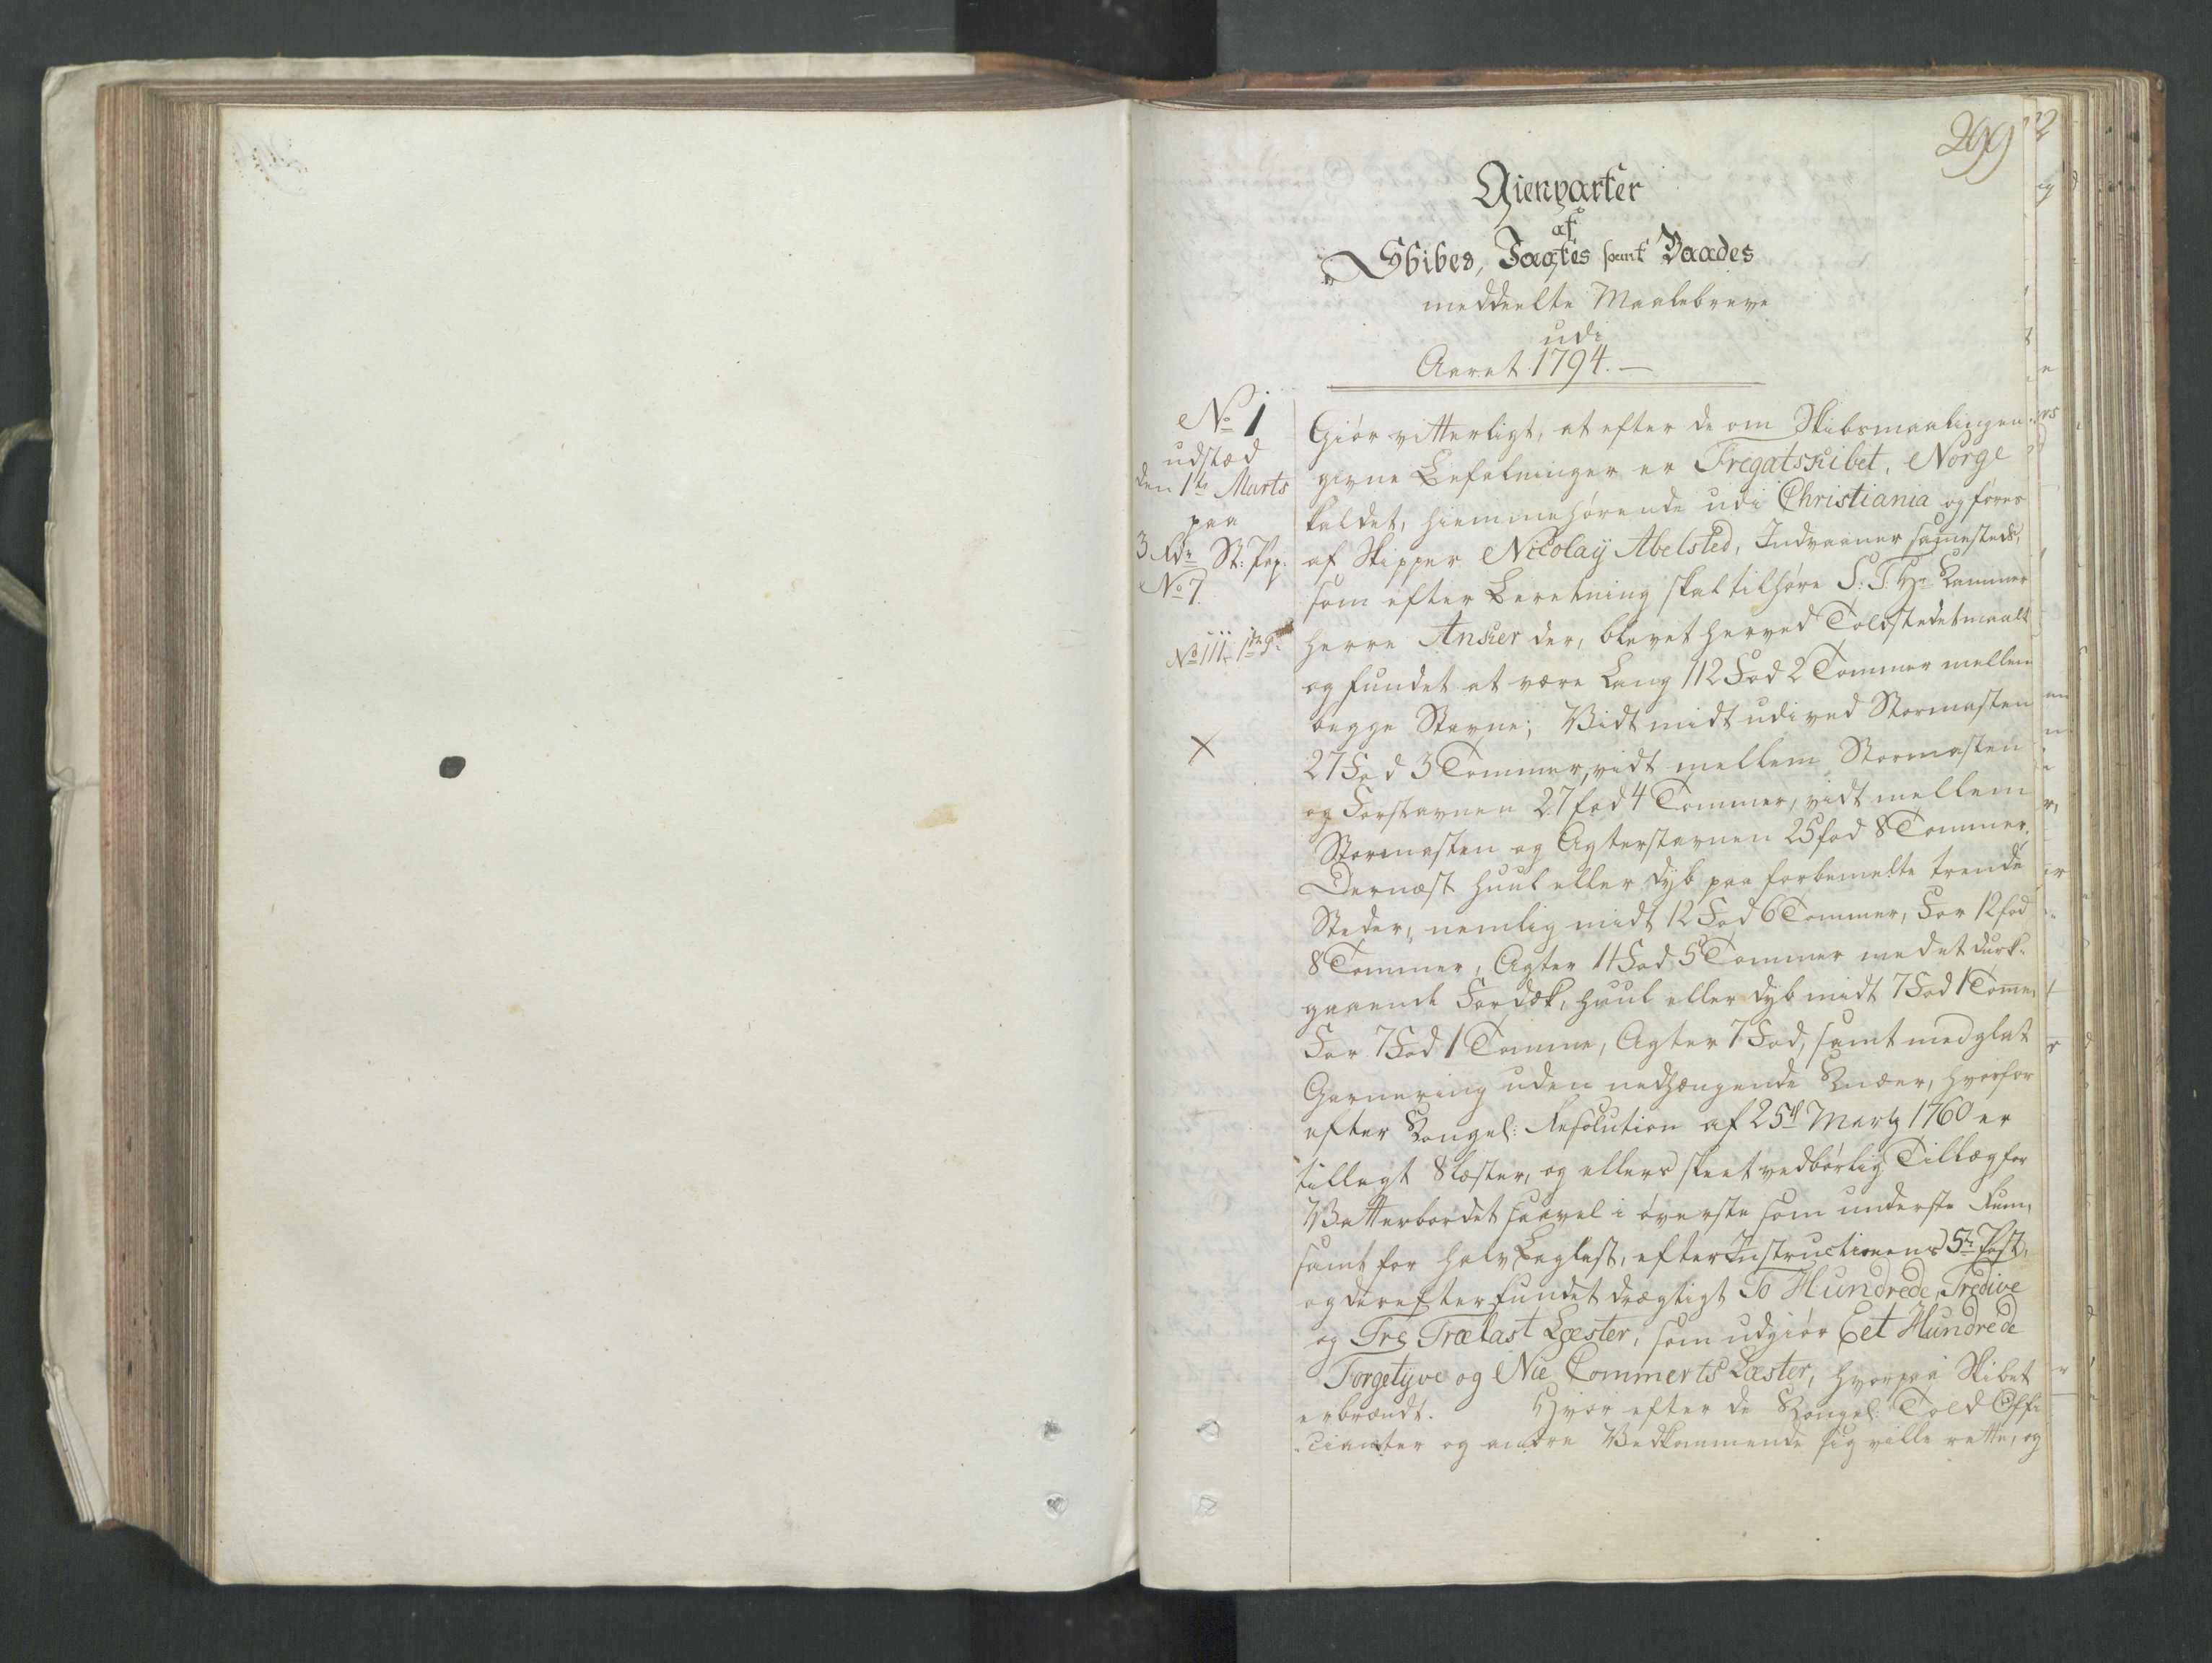 299
Gienparter
af
Skibes, Jagtes samt Baades
meddeelte Maalebreve
udi
Aaret 1794. —
No 1
udstæd
den 1te Marts
paa
3 Rdr St: Pap:
No 7.
No 111.
X
Giør vitterligt, at efter de om Skibsmaalingen
givne Befalninger er Fregatskibet, Norge
kaldet, hiemmehørende udi Christiania og føres
af Skipper Nicolaÿ Abelsted, Indvaaner sammesteds,
som efter Beretning skal tilhøre S: T: Hr Kammer
herre Anker der, blevet herved Toldstedet maalt
og fundet at være Lang 112 Fod 2 Tommer mellem
begge Stavne; Vidt midt udi ved Stormasten
27 Fod 3 Tommer, vidt mellem Stormasten
og Forstavnen 27 fod 4 Tommer, vidt mellem
Stormasten og Agterstavnen 25 fod 8 Tommer.
Dernæst huul eller dyb paa forbemelte trende
Steder, nemlig midt 12 Fod 6 Tommer, For 12 fod
8 Tommer, Agter 11 Fod 5 Tommer med et durk-
gaaende Fordæk, huul eller dyb midt 7 Fod 1 Tomme
For 7 Fod 1 Tomme, Agter 7 Fod, samt med glat
Garnering uden nedhængende Knæer, hvorfor
efter Kongel: Resolution af 25de Martz 1760 er
tillagt 8 læster, og ellers skeet vedbørlig Tillæg for
Vatterbordet saavel i øverste som underste Rum,
samt for halv Baglast, efter Instructionens 5te Post,
og derefter fundet drægtigt To Hundrede, Tredive
og Tre Trælast Læster, som udgiør Eet Hundrede
Førgetÿve og Nie Commerts Læster, hvorpaa Skibet
er brændt. Hvor efter de Kongel: Told Offi-
cianter og andre Vedkommende sig ville rette, og